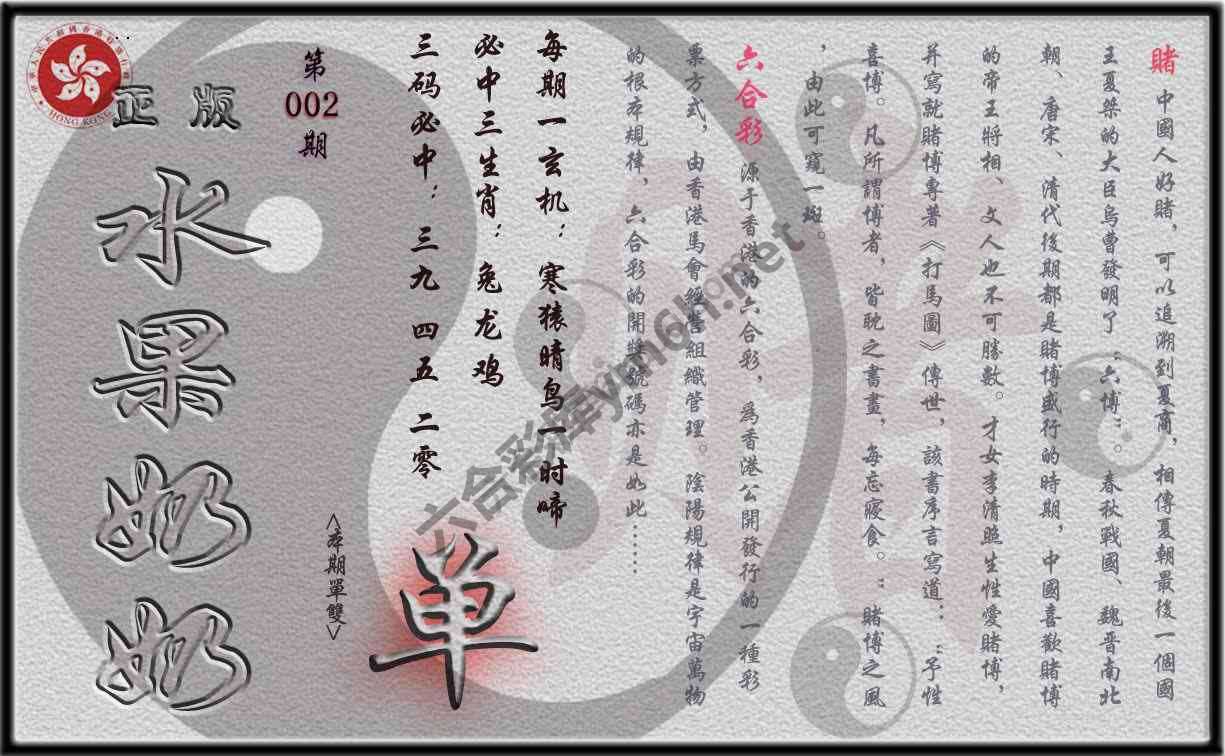 賭 中國人好賭，可以追溯到夏商，相傳夏朝最後一個國
王夏桀的大臣烏曹發明了：六博：。春秋戰國、魏晋南北
朝、唐宋、清代後期都是賭博盛行的時期，中國喜歡賭博
的帝王將相、文人也不可勝數。才女李清照生性愛賭博，
并寫就賭博專著《打馬圖》傳世，該書序言寫道：：予性
喜博。凡所謂博者，皆耽之晝晝，每忘寢食。：賭博之風
，由此可窺一斑。
六合彩 源于香港的六合彩，爲香港公開發行的一種彩
票方式，由香港馬會經營組織管理。陰陽規律是宇宙萬物
的根本規律，六合彩的開獎號碼亦是如此……
每期一玄机：寒猿晴鸟一时啼
必中三生肖：兔龙鸡
三码必中：三九 四五 二零
<本期單雙>
单
第
002
期
正版
水果奶奶
HONG KONG
六合彩库ym6h.net